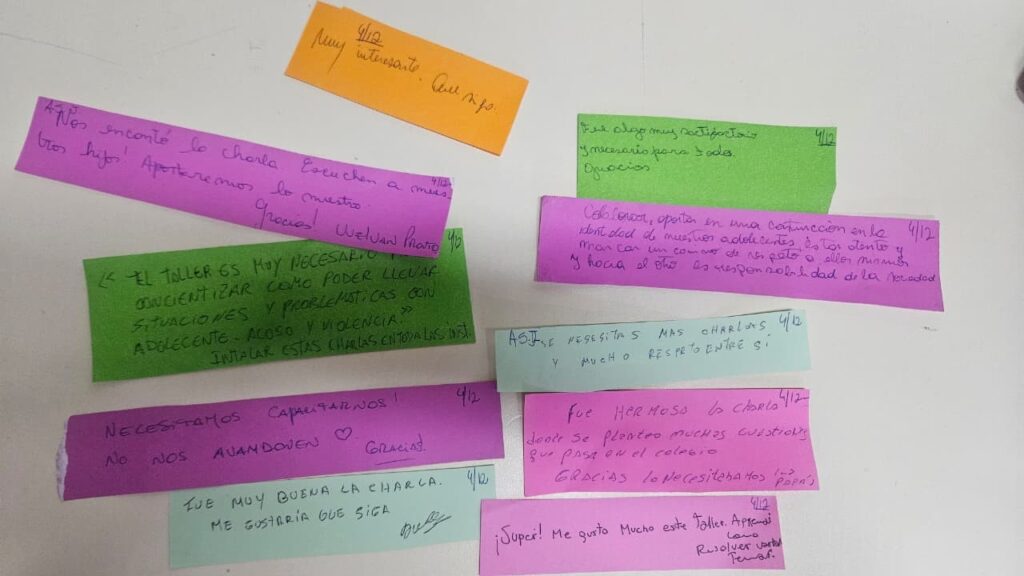 4/12
Muy interesante. Que siga.
A.S.F
Nos encantó la charla. Escuchen a nues
tros hijos! Aportaremos lo nuestro.
4/12
Gracias!
Fue algo muy satisfactorio
4/12
y necesario para todos.
Gracias
Colaborar, aportar en una conjunción en la
4/12
identidad de nuestros adolescentes. Estar atento y
marcar un camino de respeto a ellos mismos
y hacia el otro es responsabilidad de la sociedad
"EL TALLER ES MUY NECESARIO
CONCIENTIZAR COMO PODER LLEVAR
SITUACIONES Y PROBLEMATICAS CON
ADOLECENTE. ACOSO Y VIOLENCIA"
INTALAR ESTAS CHARLAS EN TODA LAS
SE NESESITAS MAS CHARLAS
4/12
Y MUCHO RESPETO ENTRE SÍ
NECESITAMOS CAPACITARNOS!
4/12
NO NOS AVANDONEN ♡
GRACIAS!
FUE HERMOSO la CHARLA
4/12
donde se planteo muchas cuestiones
que pasa en el colegio
GRACIAS lo necesitabamos los
PADRES
FUE MUY BUENA LA CHARLA.
4/12
ME GUSTARÍA QUE SIGA
4/12
¡Super! Me gusto Mucho este Taller. Aprendí
como
Resolver varios
Temas.